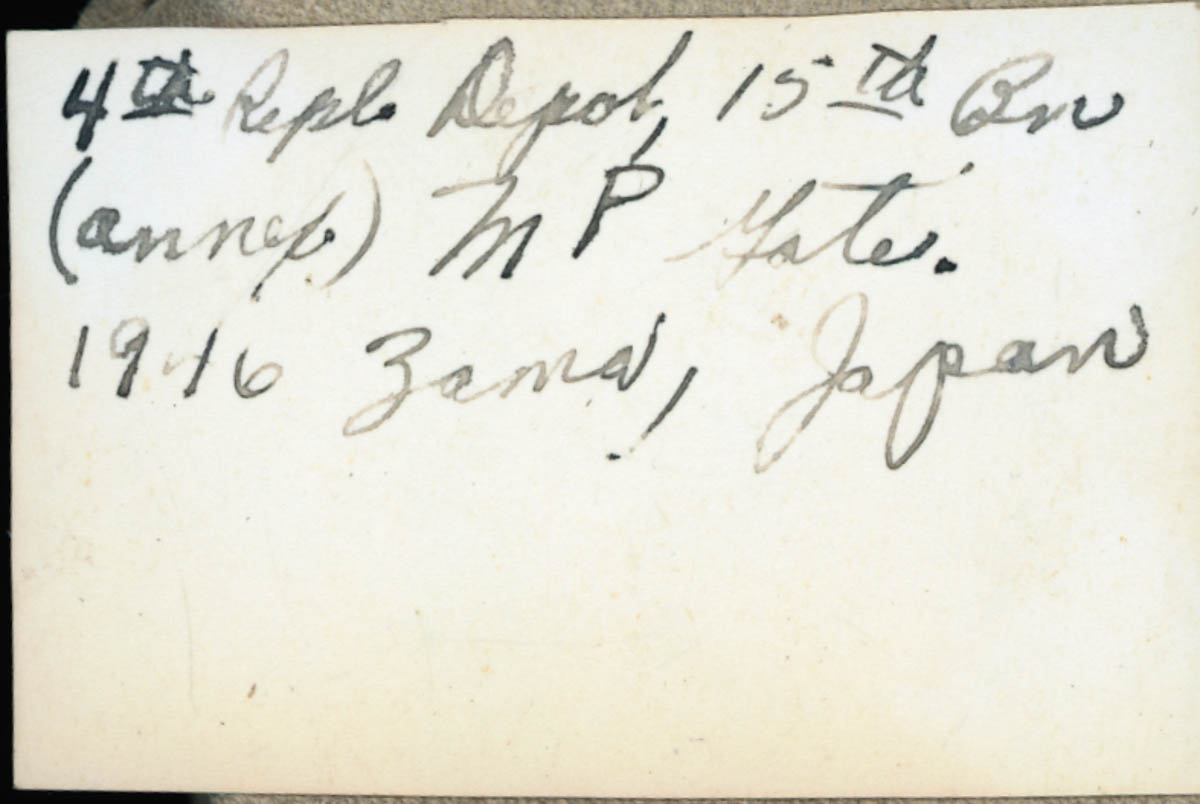 4th Repl Depot, 15th Bn
(annex) M P Gate.
1946 Zama, Japan